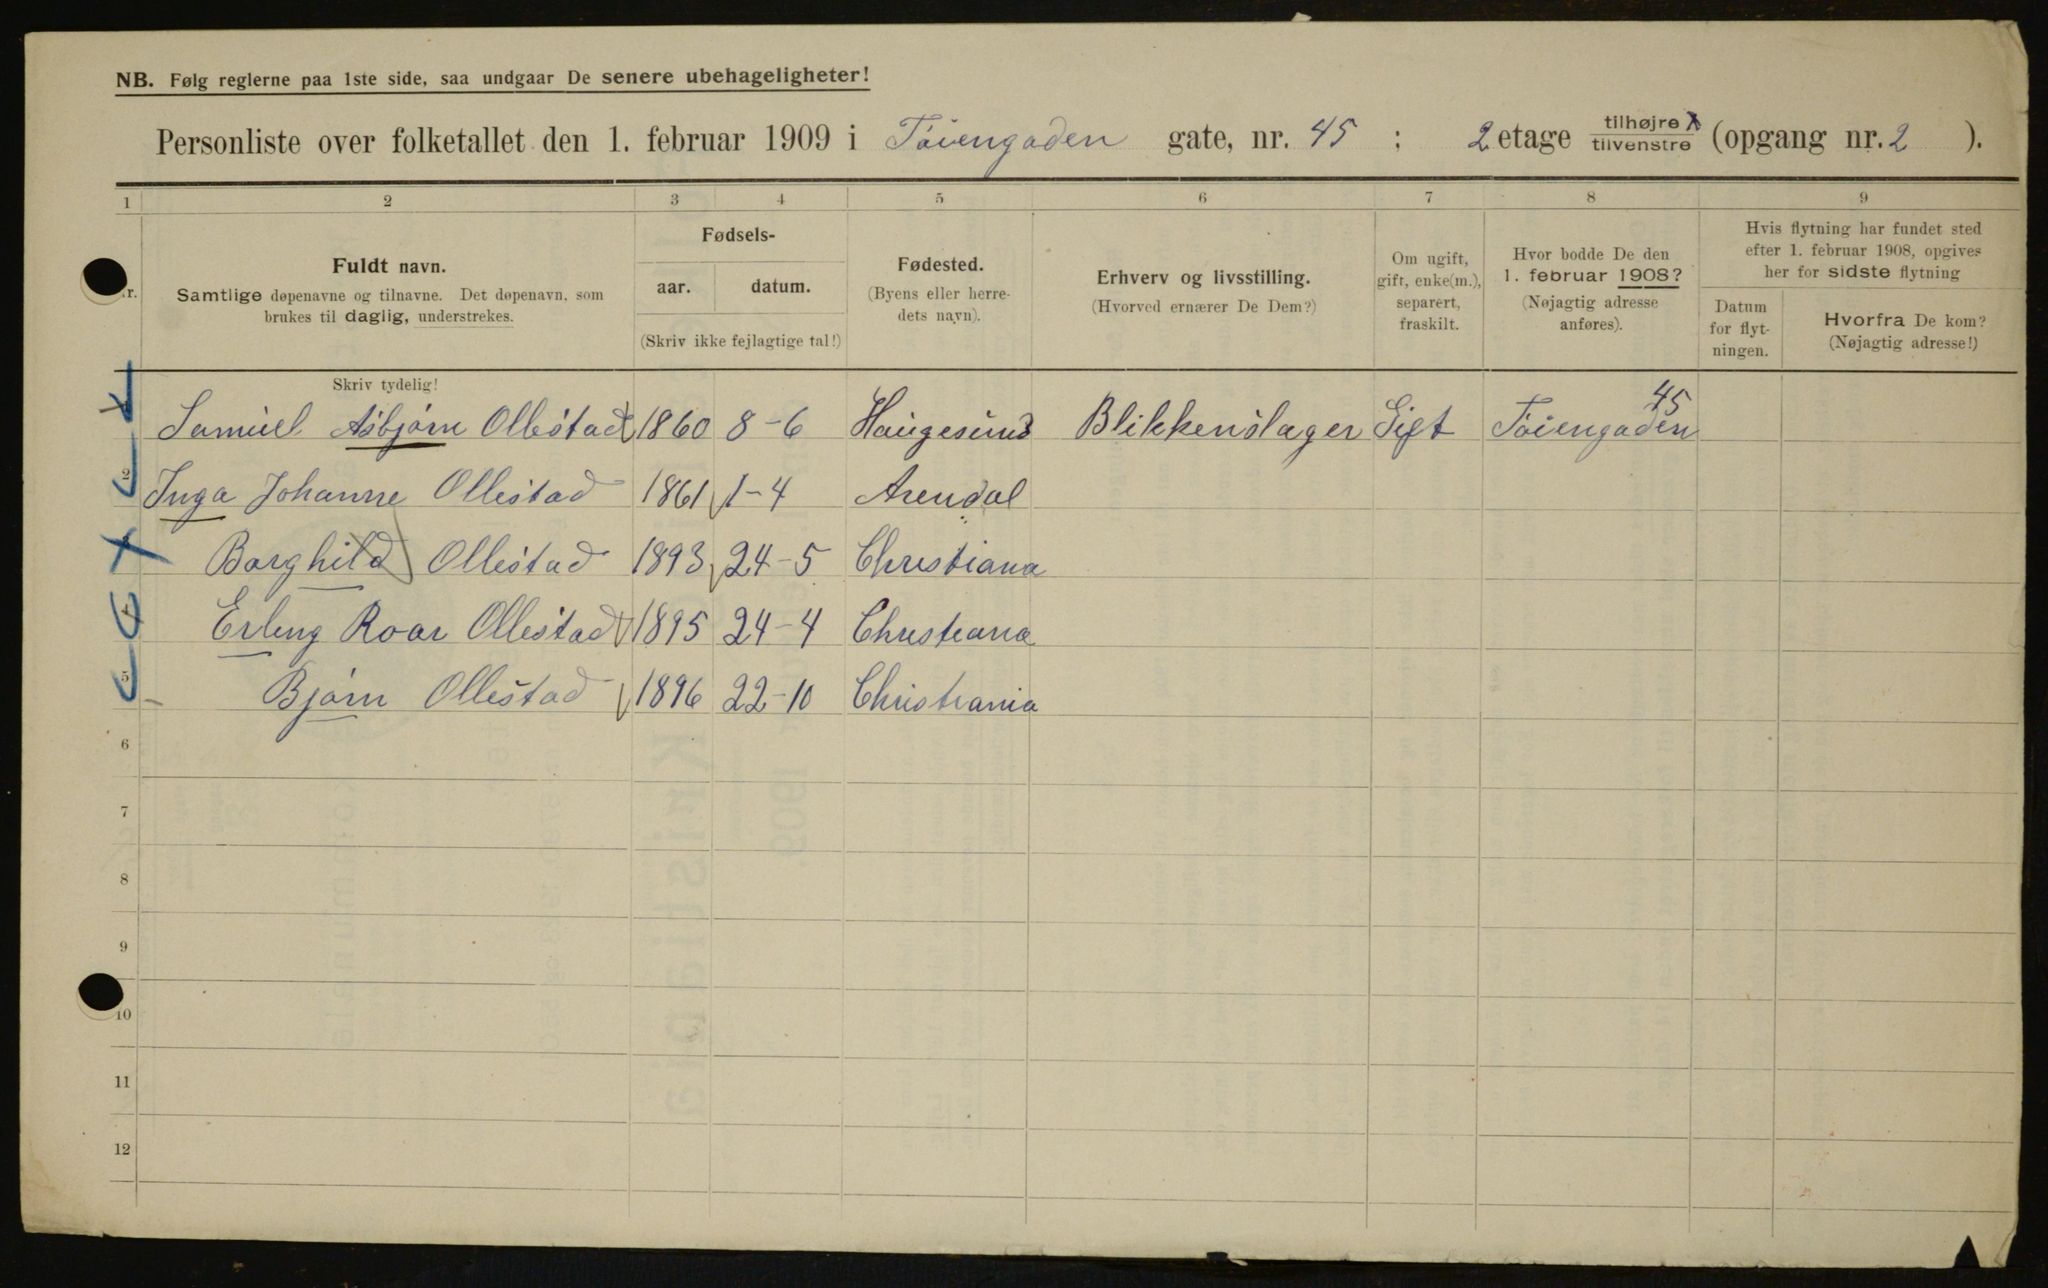 NB. Følg reglerne paa 1ste side, saa undgaar De senere ubehageligheter!
Personliste over folketallet den 1. februar 1909 i Tøiengaden gate, nr. 45 ; 2 etage tilhøjre X / tilvenstre (opgang nr. 2 ).
1 2 3 4 5 6 7 8 9
Fuldt navn.
Samtlige døpenavne og tilnavne. Det døpenavn, som
brukes til daglig, understrekes.
Skriv tydelig!
Fødsels-
aar. datum.
(Skriv ikke fejlagtige tal!)
Fødested.
(Byens eller herre-
dets navn).
Erhverv og livsstilling.
(Hvorved ernærer De Dem?)
Om ugift,
gift, enke(m.),
separert,
fraskilt.
Hvor bodde De den
1. februar 1908?
(Nøjagtig adresse
anføres).
Hvis flytning har fundet sted
efter 1. februar 1908, opgives
her for sidste flytning
Datum
for flyt-
ningen.
Hvorfra De kom?
(Nøjagtig adresse!)
Samuel Asbjørn Ollestad 1860 8-6 Haugesund Blikkenslager Gift Tøiengaden 45
2 Inga Johanne Ollestad 1861 1-4 Arendal
Borghild Ollestad 1893 24-5 Christiana
4 Erling Roar Ollestad 1895 24-4 Christiana
5 Bjørn Ollestad 1896 22-10 Christiania
6
7
8
9
10
11
12